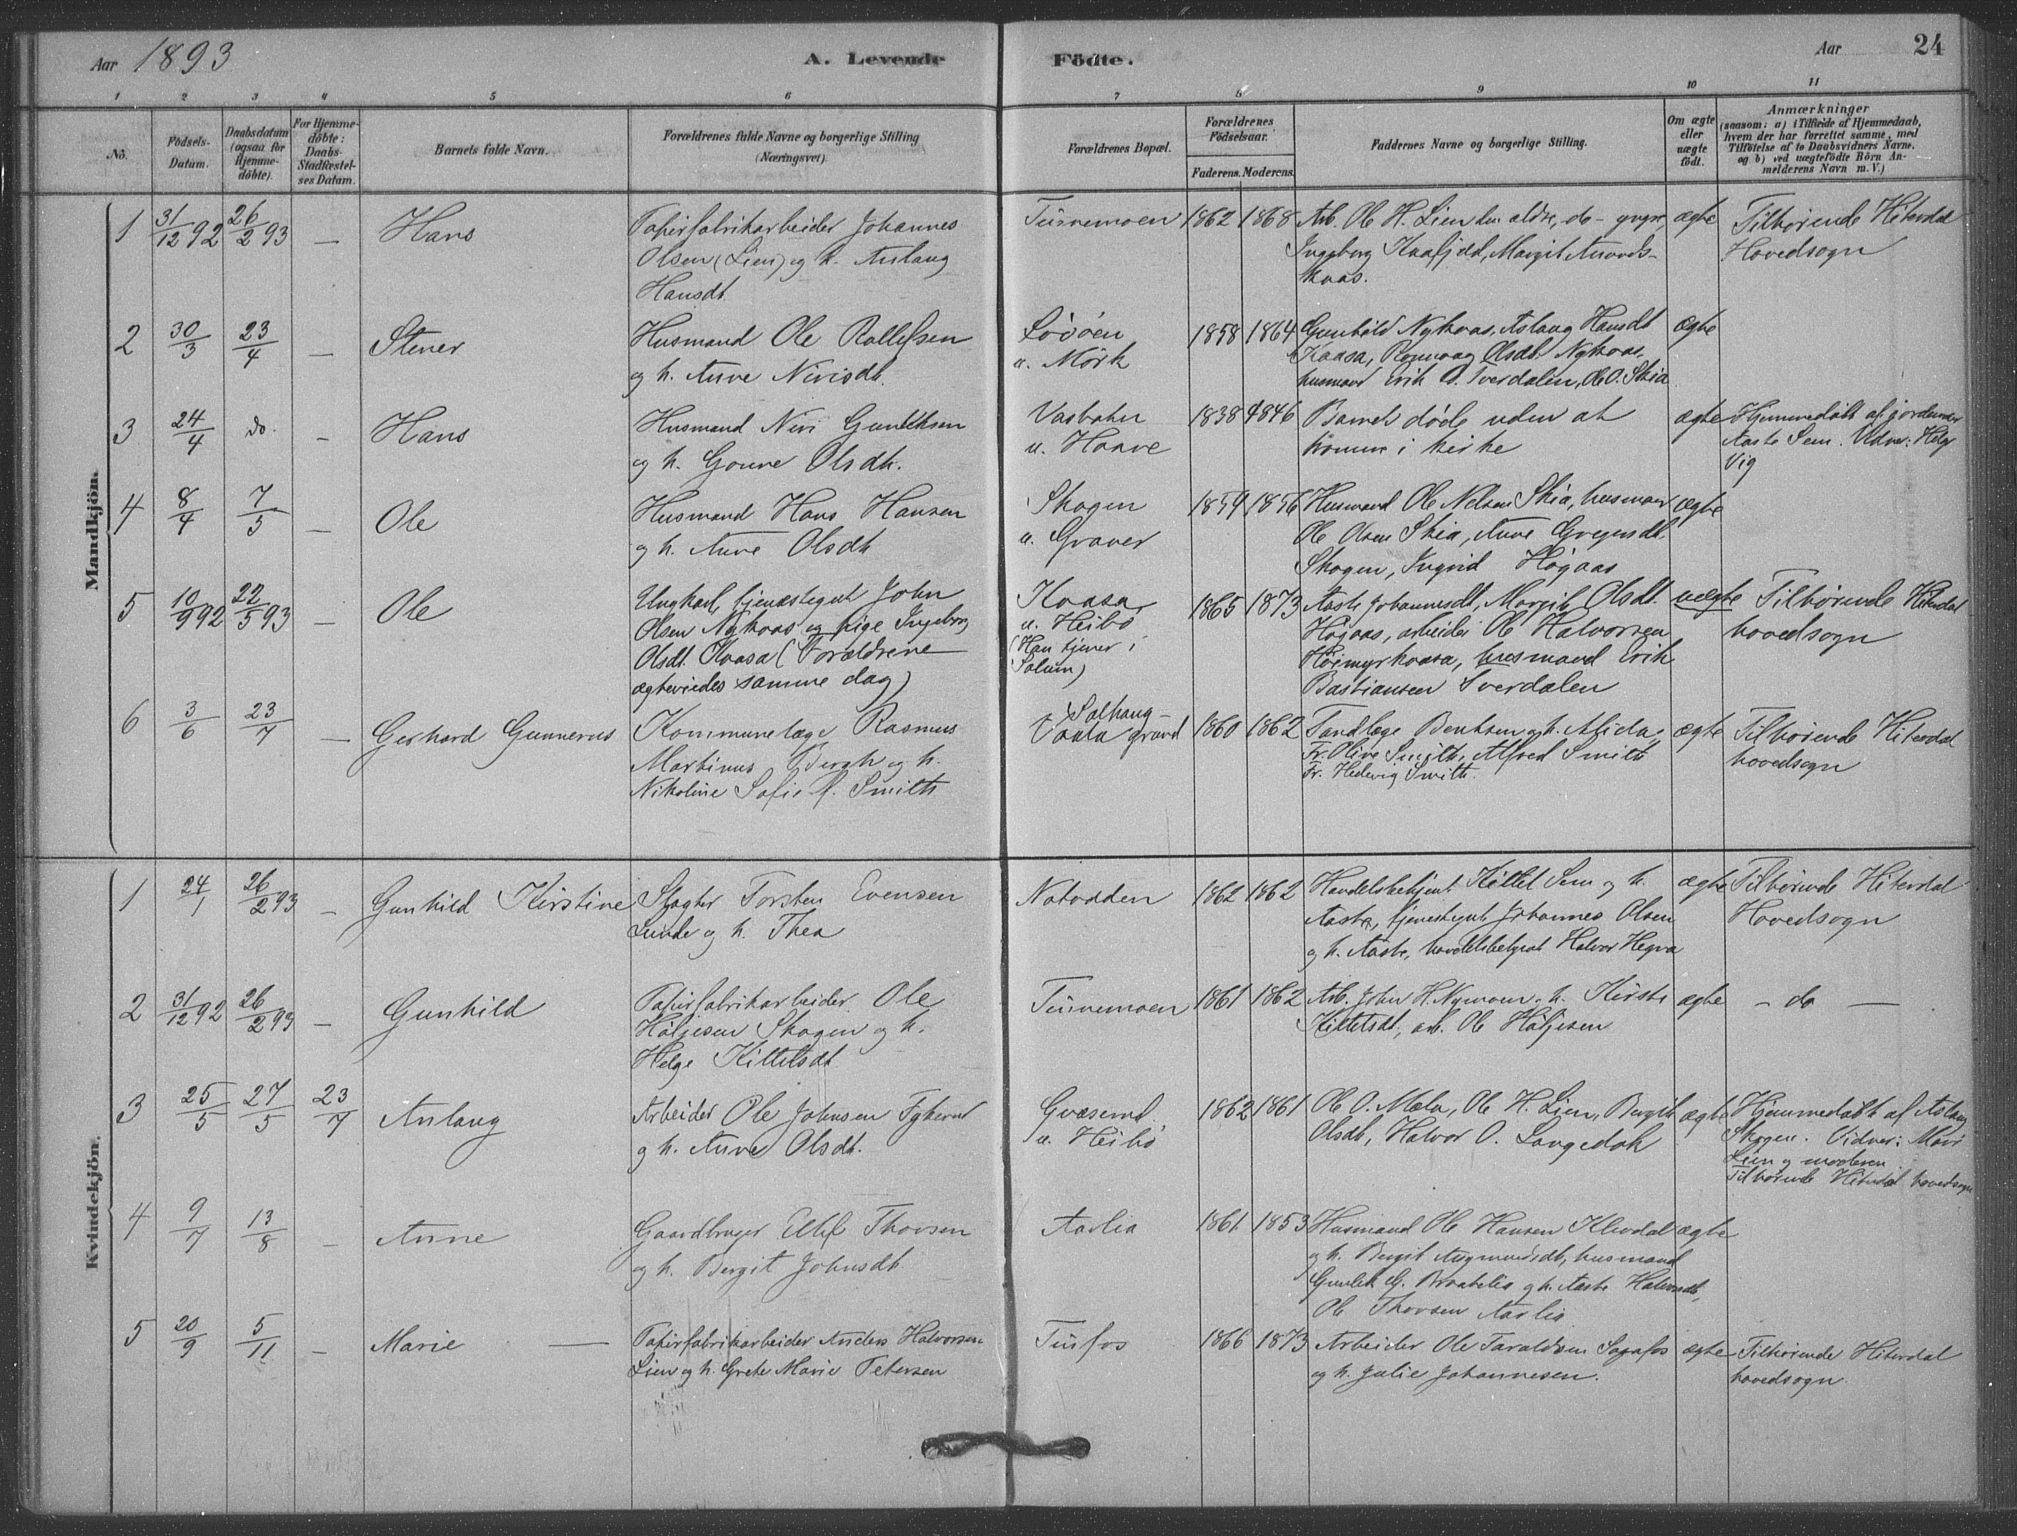 Aar 1893 A. Levende Födte. Aar 24
1 2 3 4 5 6 7 8 9 10 11
No. Födsels-Datum. Daabsdatum (ogsaa for Hjemme-döbte). For Hjemme-döbte: Daabs-Stadfæstel-ses Datum. Barnets fulde Navn. Forældrenes fulde Navne og borgerlige Stilling (Næringsvei). Forældrenes Bopæl. Forældrenes Födselsaar. Faderens. Moderens. Faddernes Navne og borgerlige Stilling. Om ægte eller uægte födt. Anmærkninger
(saasom: a) i Tilfælde af Hjemmedaab,
hvem der har forrettet samme, med
Tilföielse af to Daabsvidners Navne.
og b) ved uægtefödte Börn An-
melderens Navn m. V.)
Mandkjön.
1 31/12 92 26/2 93 — Hans Papirfabrikarbeider Johannes Tinnemoen 1862 1868 Arb. Ole H. Lien den ældre, do - yngre, ægte Tilhørende Hiterdal
Olsen (Lien) og h. Aslaug Ingeborg Kaafjeld, Margit
Hovedsogn
Hansdt. kaas.
2 30/3 23/4 — Stener Husmand Ole Rollefsen Løvøen 1858 1864 Gunhild Nykaas, Aslaug Hansdt ægte
og h. Anne Nirisdt. u. Mørk Kaasa, Ronnaug Olsdt. Nykaas,
husmand Erik B. Sverdalen, Ole O. Skia
3 24/4 do. — Hans Husmand Niri Gunleiksen Vasbotn 1838 1846 Barnet døde uden at ægte Hjemmedøbt af jordemor
og h. Gonne Olsdt. u. Haave komme i kirke Aaste Sem. Vidner: Helge
Vig
4 8/4 7/5 — Ole Husmand Hans Hansen Skogen 1859 1856 Husmand Ole Nelsen Skia, husmand ægte
og h. Anne Olsdt u. Graver Ole Olsen Skia, Anne Gregersdt.
Skogen, Ingrid Høgaas
5 10/9 92 22/5 93 — Ole Ungkarl, tjenestegut John Kaasa 1865 1873 Aaste Johannesdt, Margit Olsdt. uægte Tilhørende Hiterdal
Olsen Nykaas og pige Ingeborg u. Heibø Høgaas, arbeider Ole Halvorsen hovedsogn
Olsdt. Kaasa (Forældrene (Han tjener i Høimyrkaasa, husmand Erik
ægteviedes samme dag) Solum) Bastiansen Sverdalen
6 3/6 23/7 — Gerhard Gunnerus Kommunelæge Rasmus Solhaug - 1860 1862 Tandlæge Bentsen og h. Alida, ægte Tilhørende Hiterdal
Martinus Bergh og h. Vaala grund Fr. Olive Smith, Alfred Smith hovedsogn
Nikoline Sofie f. Smith Fr. Hedevig Smith.
Kvindekjön.
1 24/1 26/2 93 — Gunhild Kirstine Slagter Torsten Evensen Notodden 1862 1862 Handelsbetjent Kittel Sem og h. ægte Tilhørende Hiterdal
Lunde og h. Thea Aasta, tjenestegut Johannes Olsen Hovedsogn
og h. Aaste, handelsbetjent Halvor Hegna
2 31/12 92 26/2 93 — Gunhild Papirfabrikarbeider Ole Tinnemoen 1861 1862 Arb. John H. Nymoen, h. Kirste ægte - do —
Høljesen Skogen og h. Kittelsdt, arb. Ole Høljesen
Helge Kittelsdt
3 25/5 27/5 23/7 Aslaug Arbeider Ole Johnsen Tykerud Grasrud 1862 1861 Ole O. Mæla, Ole H. Lien, Bergit ægte Hjemmedøbt af Aslaug
og h. Anne Olsdt. u. Heibø Olsdt, Halvor O. Langedok Skogen. Vidner: Mari
Lien og moderen
Tilhørende Hiterdal hovedsogn
4 9/7 13/8 — Anne Gaardbruger Ellef Thovsen Aaslia 1861 1853 Husmand Ole Hansen Klevdal ægte
og h. Bergit Johnsdt. og h. Bergit Augmundsdt, husmand
Gunleik G. Braatelia og h. Aaste Halvorsdt,
Ole Thovsen Aaslia
5 20/9 5/11 — Marie — Papirfabrikarbeider Anders Halvorsen Tinfos 1866 1873 Arbeider Ole Taraldsen Sagafos ægte Tilhørende Hiterdal
Lien og h. Grete Marie Petersen og h. Julie Johannesen. hovedsogn.